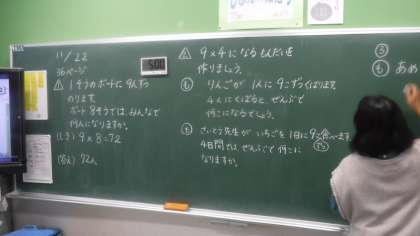 11/22
36ページ
1そうのボートに9人ずつ
のります。
ボート8そうでは、みんなで
何人になりますか。
(しき) 9×8=72
(答え) 72人
5:00
9×4になるもんだいを
作りましょう。
も りんごが1人に9こずつくばります。
4人にくばると、ぜんぶで
何こになるでしょう。
さいとう先生がいちごを1日に9こ食べます。
ずつ
4日間では、ぜんぶで何こに
なりますか。
③
も あめ